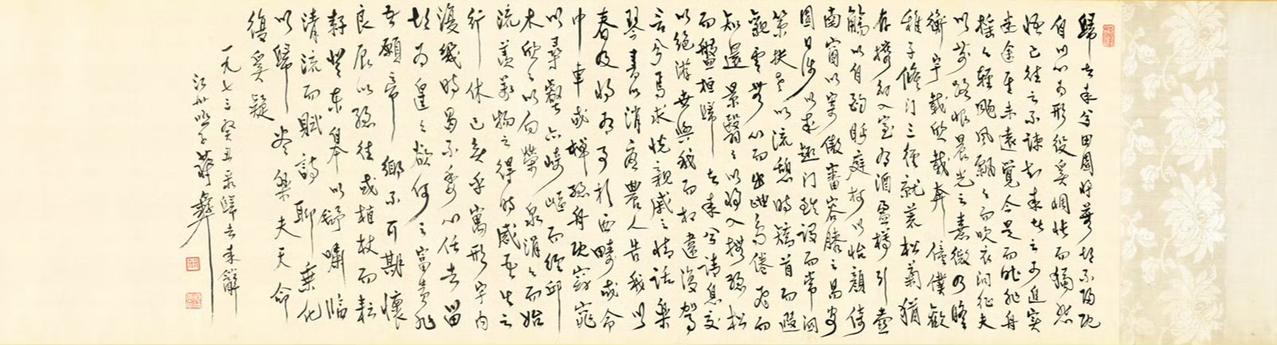 歸去来兮田園將蕪胡不歸既
自以心為形役奚惆悵而獨悲
悟已往之不諫知来者之可追實
迷途其未遠覺今是而昨非舟
搖々輕颺風飄々而吹衣問征夫
以前路恨晨光之熹微乃瞻
衡宇載欣載奔僮僕歡
稚子候門三徑就荒松菊猶
存攜幼入室有酒盈樽引壺
觴以自酌眄庭柯以怡顏倚
南窗以寄傲審容膝之易安
園日涉以成趣門雖設而常關
策扶老以流憩時矯首而遐
觀雲無心而出岫鳥倦飛而
知還景翳々以將入撫孤松
而盤桓歸去来兮請息交
以絕游世與我而相違復駕
言兮焉求悅親戚之情話樂
琴書以消憂農人告我以
春及將有事於西疇或命
巾車或棹孤舟既窈窕
以尋壑亦崎嶇而經邱
木欣々以向榮泉涓々而始
流羨萬物之得時感吾生之
行休已矣乎寓形宇內
復幾時曷不委心任去留
胡為遑々欲何之富貴非
吾願帝鄉不可期懷
良辰以孤往或植杖而耘
耔登東皋以舒嘯臨
清流而賦詩聊乘化
以歸盡樂夫天命
復奚疑
一九七三癸丑歸去来辭